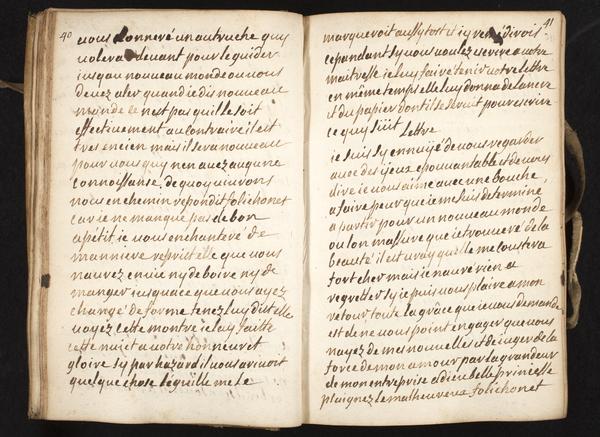 40
vous donneré un autruche quy
volera devant pour le guider
jusqau nouveau monde ou vous
devez aler quand je dis nouveau
monde ce nest pas quil le soit
effectivement au contraire il est
tres encien mais il sera nouveau
pour vous quy nen avez augune
connoissanse de quoy vivrons
nous en chemin repondit folichonet
car je ne manque pas de bon
apetit je vous enchanteré de
manniere reprit elle que vous
naurez envie ny de boire ny de
manger jusquace que vous ayez
changé de forme tenez luy dit elle
voyez cette montre je lay faitte
cette nuit a votre honneur et
gloire sy par hazard il vous arivoit
quelque chose leguille me le
41
marqueroit aussytost et jy remedirois
cependant sy vous voulez ecrire a votre
maitresse je luy faire tenir votre lettre
en même temps elle luy donna de lancre
et du papier dont il se servit pour escrire
ce quy suit lettre
je suis sy ennuyé de vous regarder
avec des yeux epouvantable et de vous
dire je vous aime avec une bouche
a faire peur que je me suis determiné
a partir pour un nouveau monde
ou lon massure que je trouveré de la
beauté il est vray quelle me coustera
fort cher mais je nauré rien a
regretter sy je puis vous plaire a mon
retour toute la grace que je vous demande
est de ne vous point engager que vous
nayez de mes nouvelles et de juger de la
force de mon amour par la grandeur
de mon entreprise adieu belle princesse
plaignez le malheureux folichonet